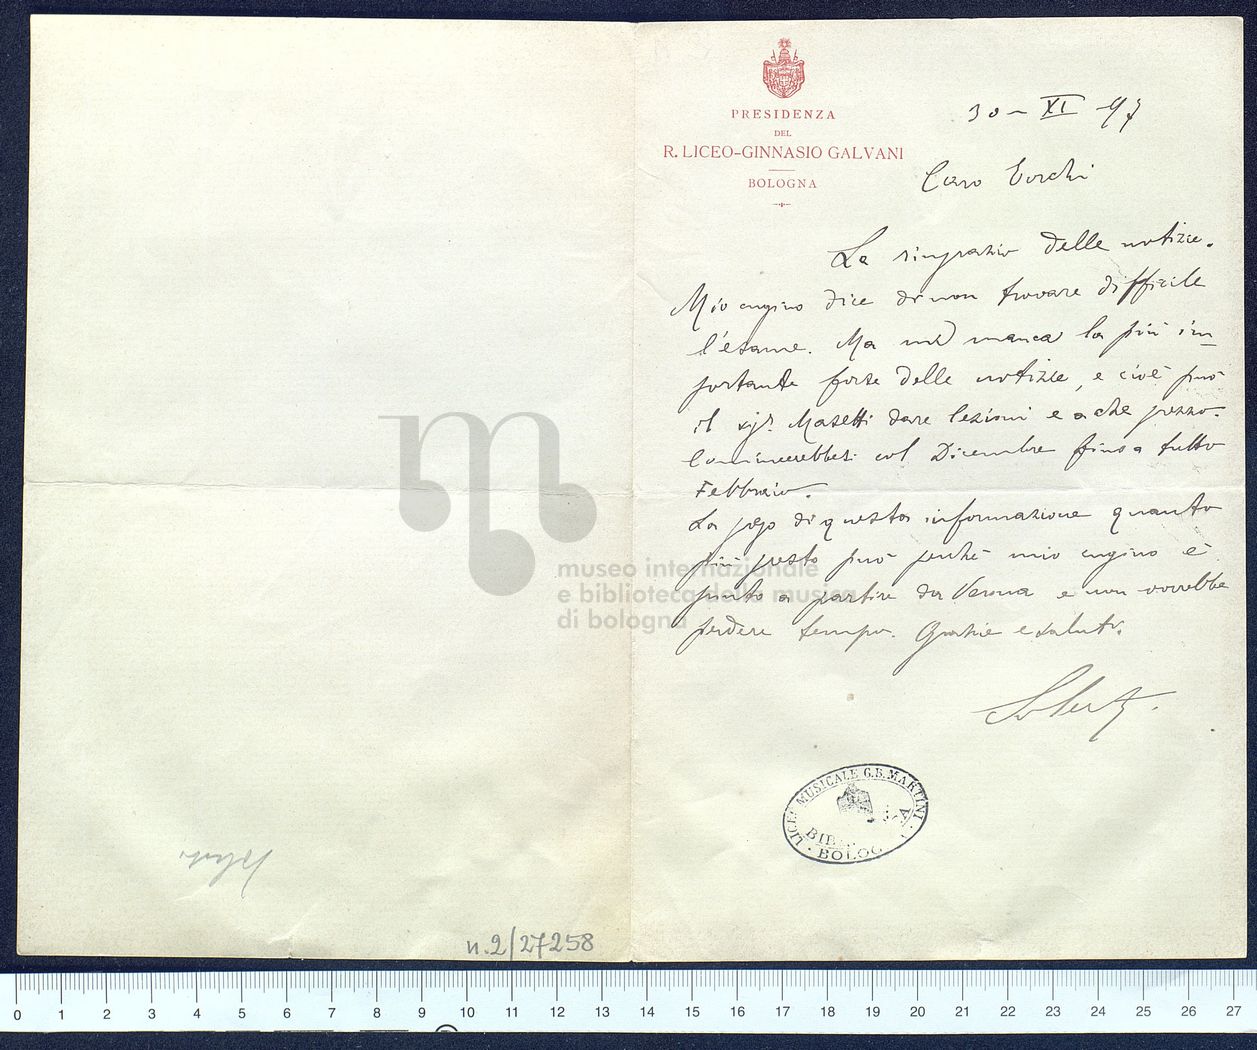 PRESIDENZA
DEL
R. LICEO-GINNASIO GALVANI
BOLOGNA
30 - XI 97
Caro Torchi
La ringrazio delle notizie.
Mio cugino dice di non trovare difficile
l'esame. Ma mi manca la più im-
portante forse delle notizie, e cioè può
il sigr. Masetti dare lezioni e a che prezzo.
Comincerebbesi col Dicembre fino a tutto
Febbraio.
La prego di questa informazione quanto
più presto può perchè mio cugino è
pronto a partire da Verona e non vorrebbe
perdere tempo. Grazie e saluti.
LICEO MUSICALE G.B. MARTINI
BOLOG
n.2/27258
museo internazionale
e biblioteca della musica
di bologna
0 1 2 3 4 5 6 7 8 9 10 11 12 13 14 15 16 17 18 19 20 21 22 23 24 25 26 27